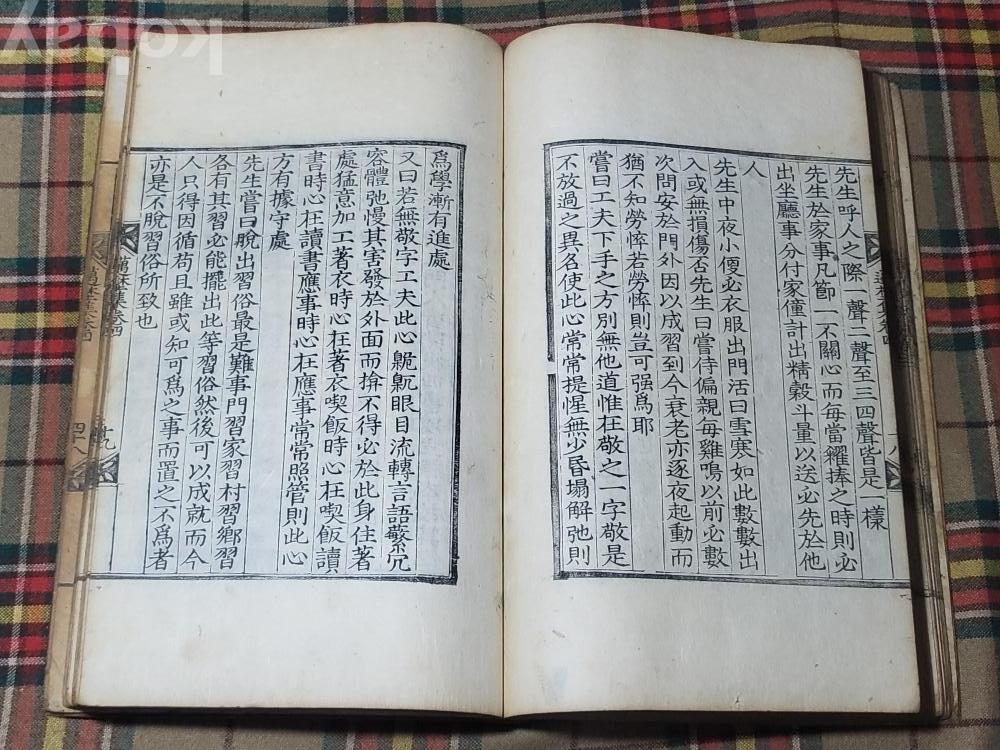 先生呼人之際一聲二聲至三四聲皆是一樣
先生於家事凡節一不關心而每當糴捧之時則必
出坐廳事分付家僮計出精穀斗量以送必先於他
人
先生中夜小便必衣服出門活曰雪寒如此數數出
入或無損傷否先生曰嘗侍偏親每雞鳴以前必數
次問安於門外因以成習到今衰老亦逐夜起動而
猶不知勞悴若勞悴則豈可强爲耶
嘗曰工夫下手之方別無他道惟在敬之一字敬是
不放過之異名使此心常常提惺無少昏塌解弛則
爲學漸有進處
又曰若無敬字工夫此心臲卼眼目流轉言語繁冗
容體弛慢其害發於外面而揜不得必於此身住著
處猛意加工著衣時心在著衣喫飯時心在喫飯讀
書時心在讀書應事時心在應事常常照管則此心
方有據守處
先生嘗曰脫出習俗最是難事門習家習村習鄕習
各有其習必能擺出此等習俗然後可以成就而今
人只得因循苟且雖或知可爲之事而置之不爲者
亦是不脫習俗所致也
kobay